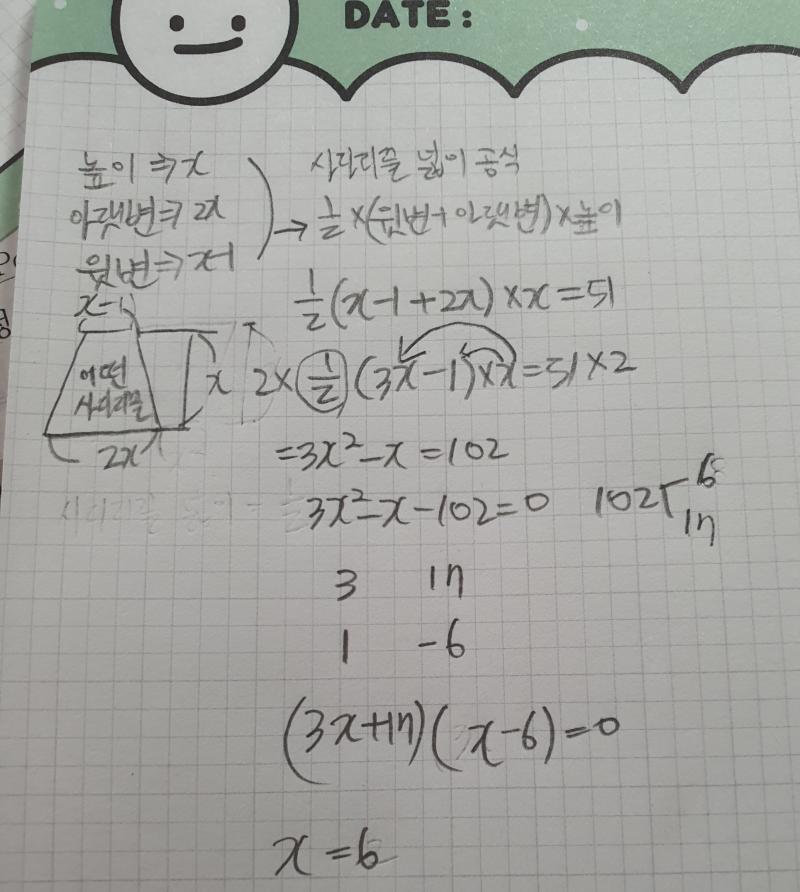 DATE :
높이 ⇒ x
아랫변 ⇒ 2x
윗변 ⇒ x-1
사다리꼴 넓이 공식
→ 1/2 × (윗변 + 아랫변) × 높이
1/2 (x-1+2x) × x = 51
x-1
어떤
사다리꼴
x
2x
2 × 1/2 (3x-1) × x = 51 × 2
= 3x² - x = 102
3x² - x - 102 = 0
102 6
17
3 17
1 -6
(3x+17)(x-6) = 0
x = 6